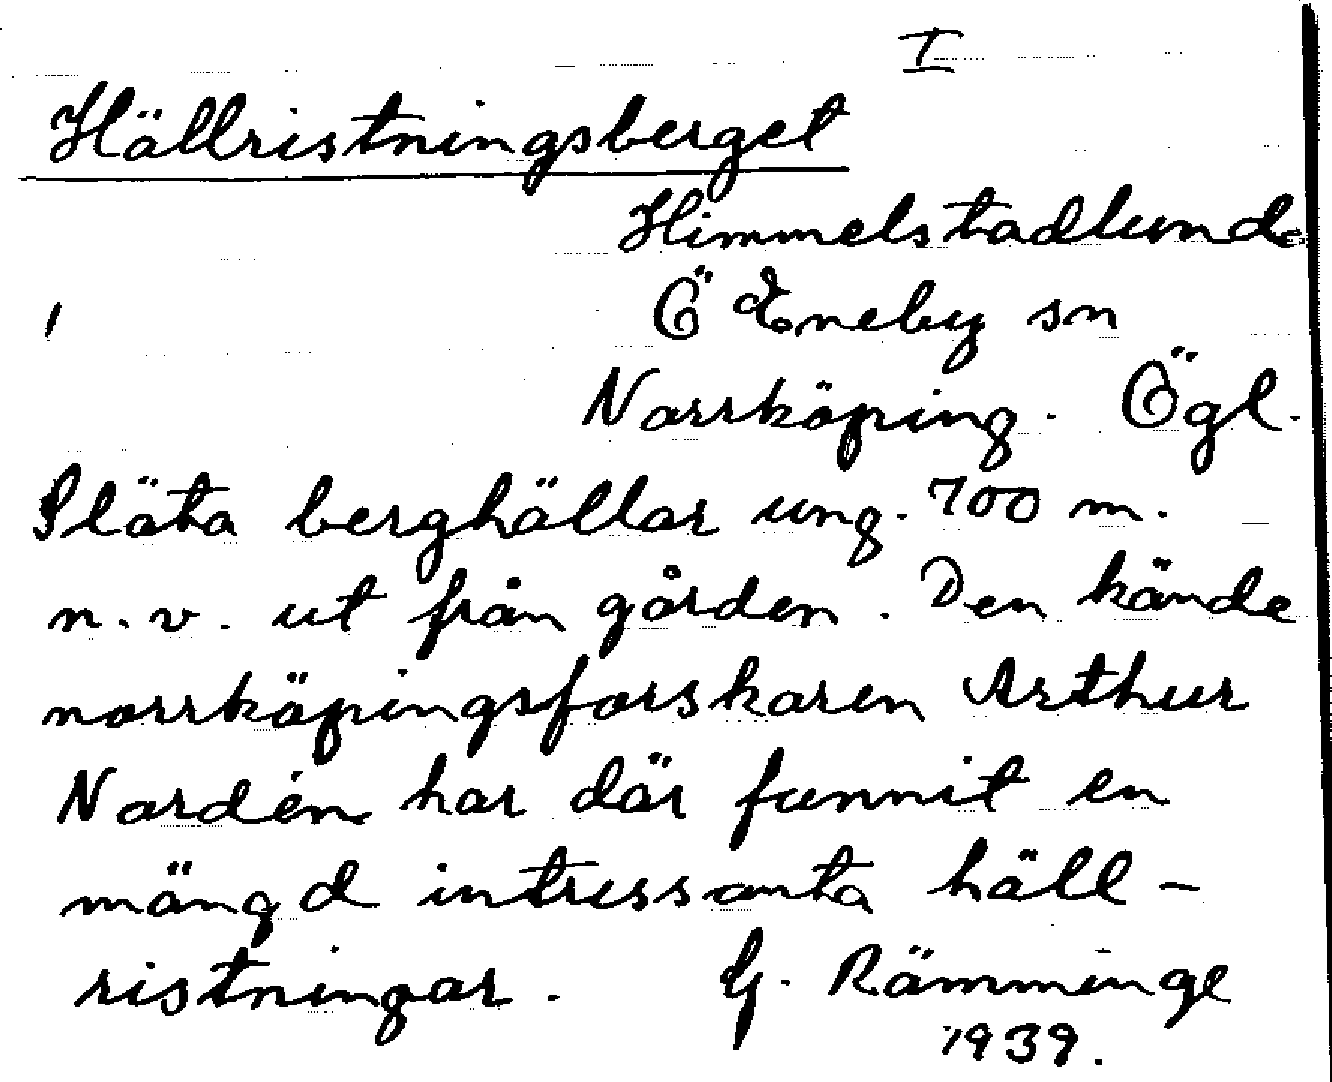 I
Hällristningsberget
Himmelstadlund
Ö Eneby sn
Norrköping. Ögl.
Släta berghällar ung. 700 m.
n.v. ut från gården. Den kände
norrköpingsforskaren Arthur
Nordén har där funnit en
mängd intressanta häll-
ristningar. G. Rämminge
1939.